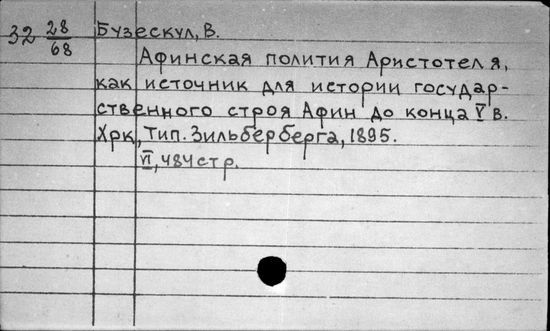 32 28/68 Бузескул, В.
Афинская полития Аристотеля,
как источник для истории государ-
ственного строя Афин до конца V в.
Хрк, Тип. Зильберберга, 1895.
VI, 484 стр.